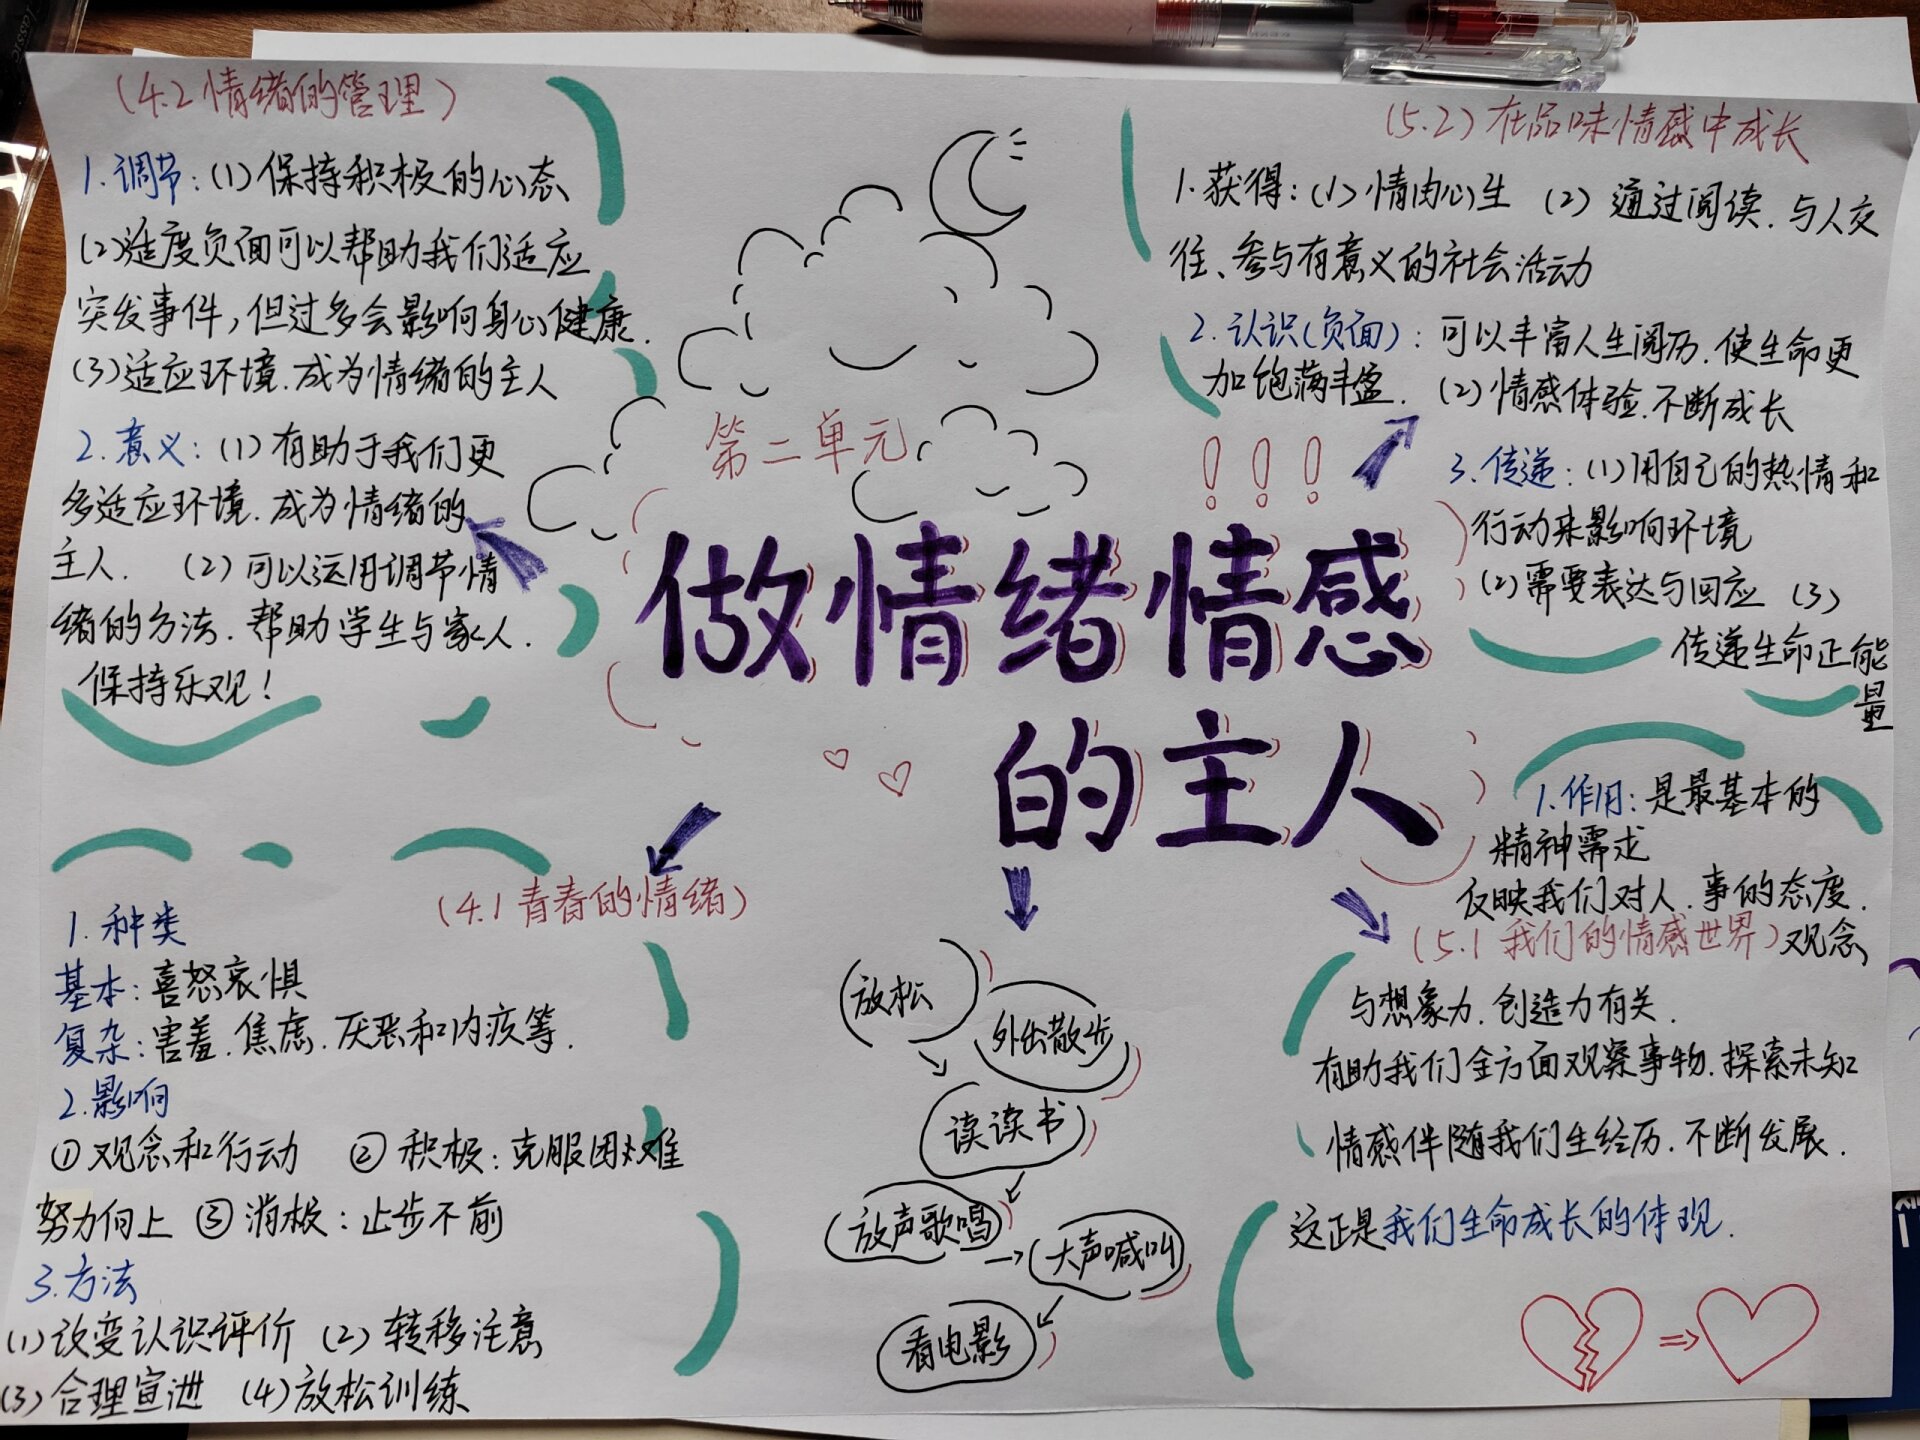 (4.2 情绪的管理)
1.调节:(1)保持积极的心态
(2)适度负面可以帮助我们适应
突发事件,但过多会影响身心健康.
(3)适应环境.成为情绪的主人
2.意义:(1)有助于我们更
多适应环境.成为情绪的
主人. (2)可以运用调节情
绪的方法.帮助学生与家人.
保持乐观!
第二单元
做情绪情感
的主人
(5.2)在品味情感中成长
1.获得:(1)情由心生 (2)通过阅读.与人交
往、参与有意义的社会活动
2.认识(负面):可以丰富人生阅历.使生命更
加饱满丰盈. (2)情感体验.不断成长
!!!
3.传递:(1)用自己的热情和
行动来影响环境
(2)需要表达与回应 (3)
传递生命正能
量
(4.1青春的情绪)
1.种类
基本:喜怒哀惧
复杂:害羞.焦虑.厌恶和内疚等.
2.影响
①观念和行动 ②积极:克服困难
努力向上 ③消极:止步不前
3.方法
(1)改变认识评价 (2)转移注意
(3)合理宣泄 (4)放松训练
放松
外出散步
读读书
放声歌唱
大声喊叫
看电影
1.作用:是最基本的
精神需求
反映我们对人.事的态度.
(5.1 我们的情感世界)观念
与想象力.创造力有关.
有助我们全方面观察事物.探索未知
情感伴随我们生经历.不断发展.
这正是我们生命成长的体现.